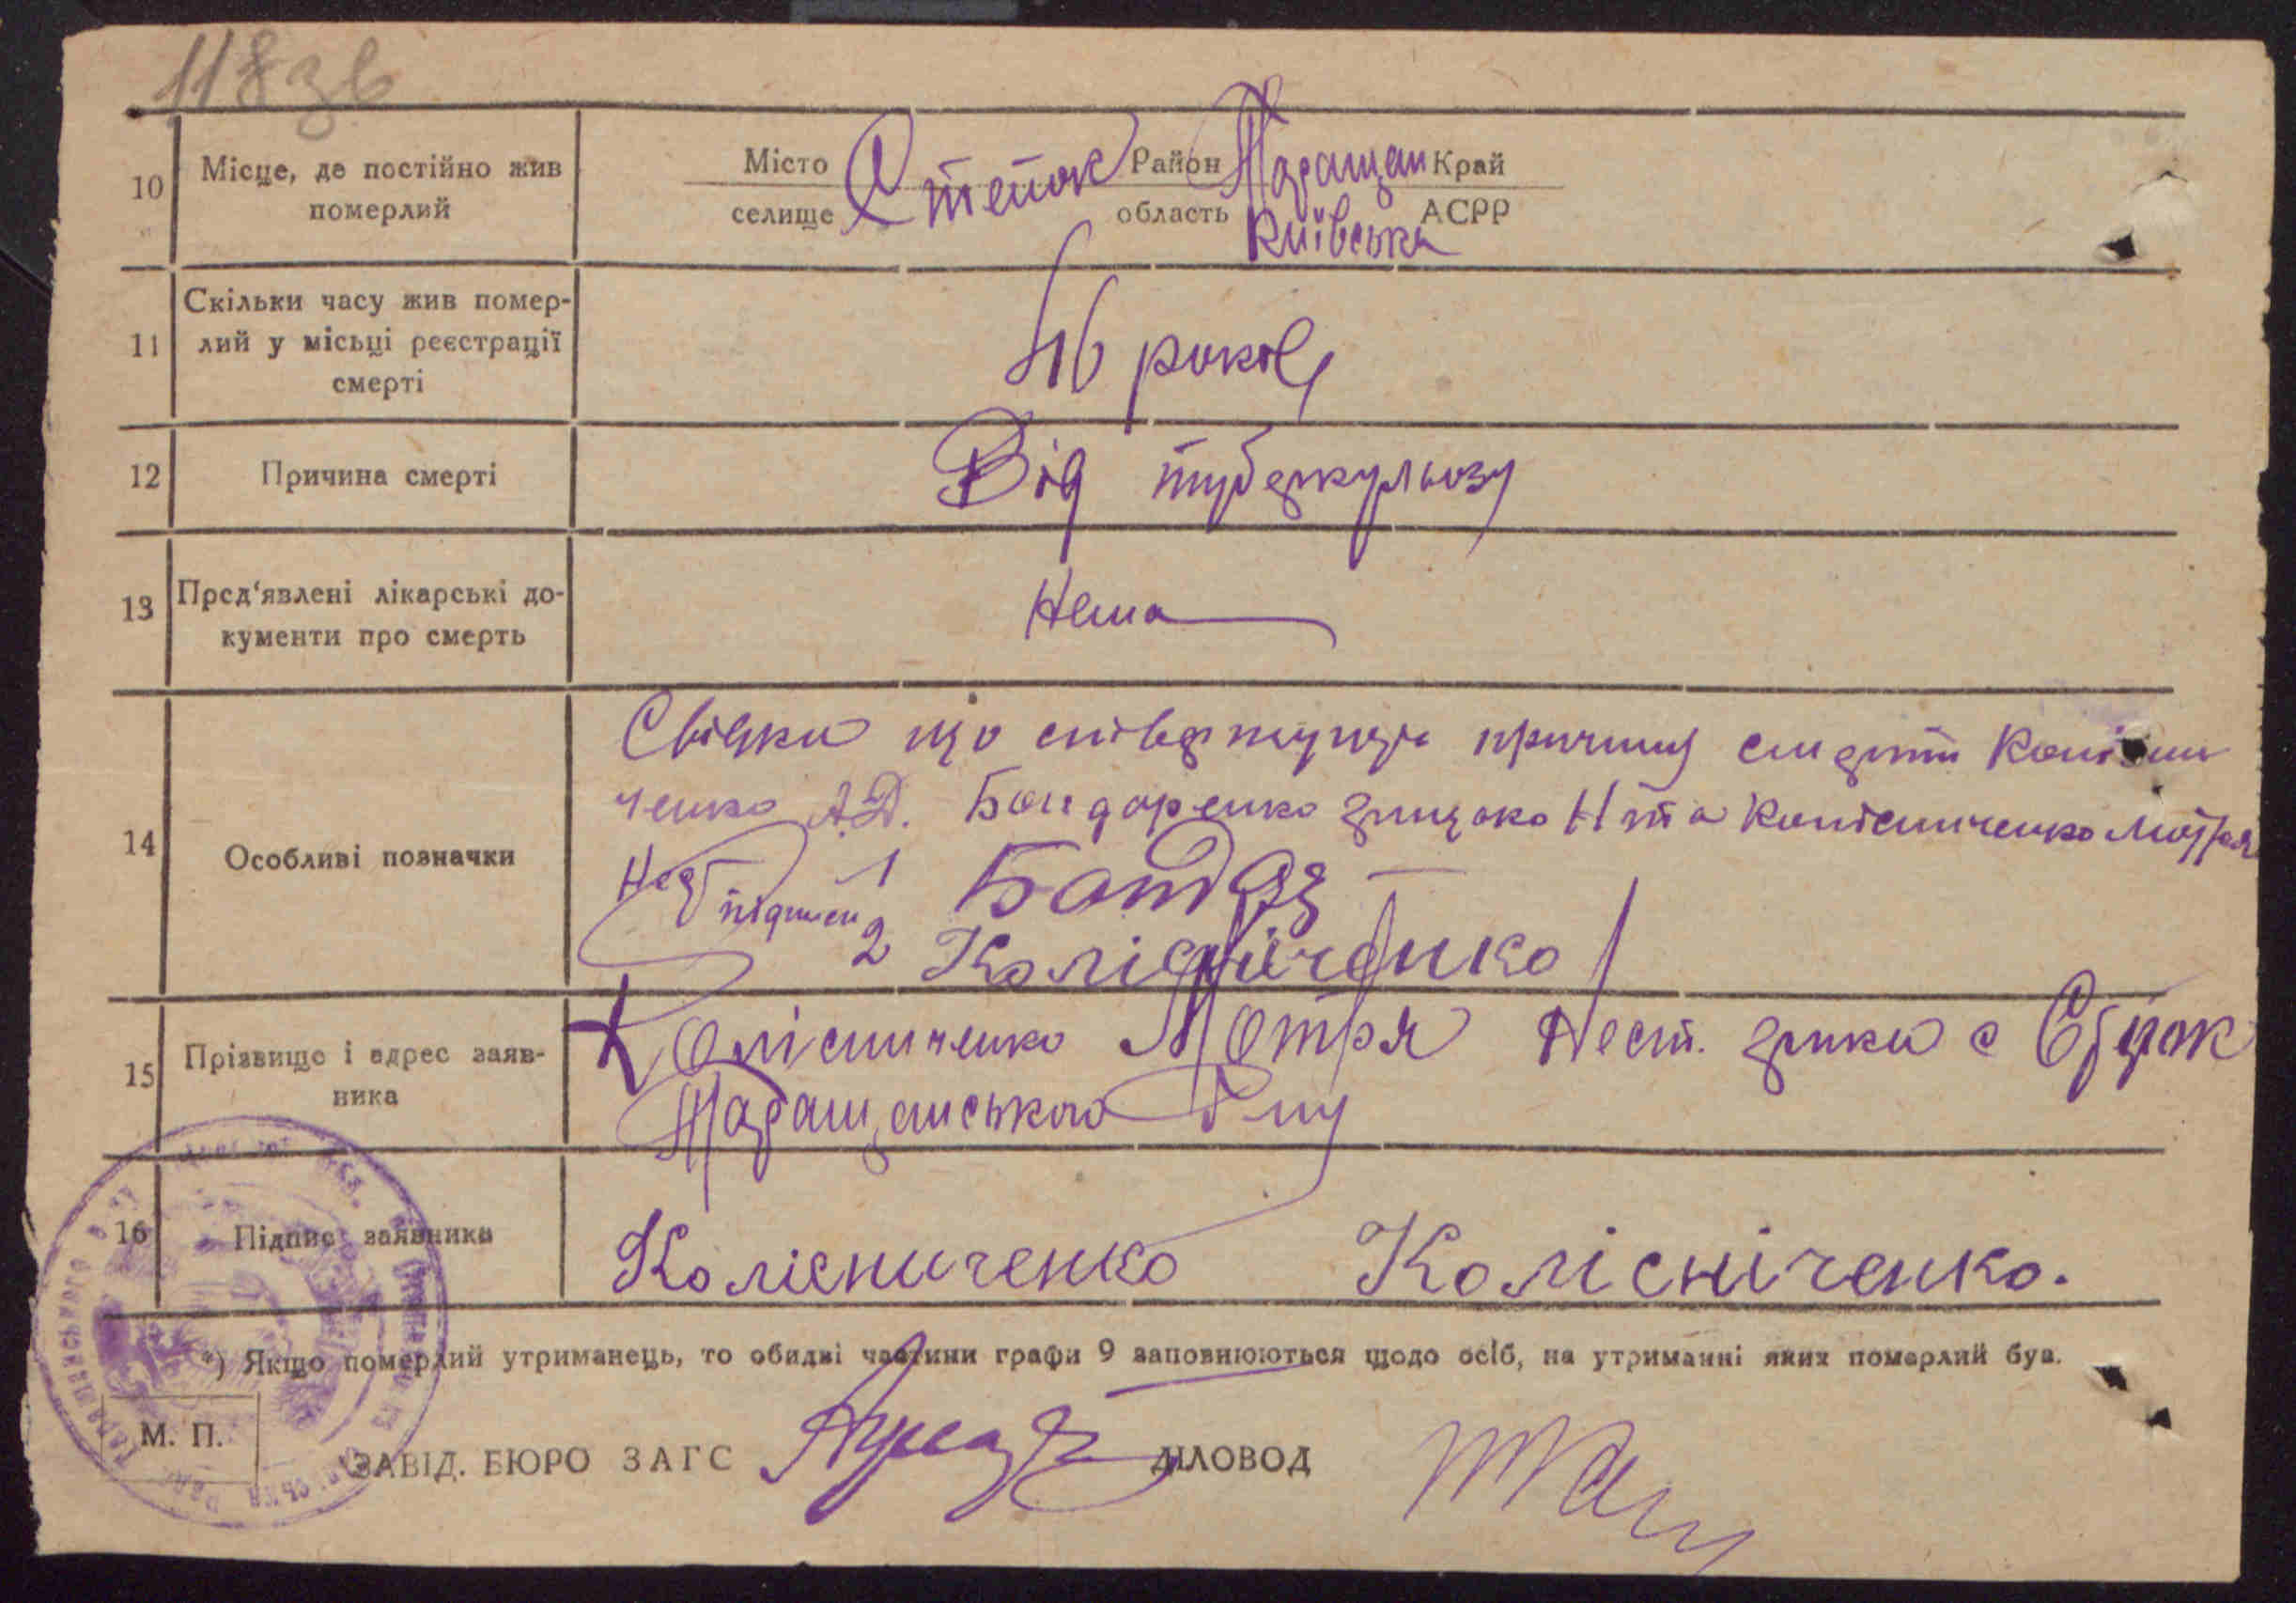 118 зв
10 Місце, де постійно жив померлий
Місто Степок Район Таращан Край
селище область Київська АСРР
11 Скільки часу жив помер-
лий у місьці реєстрації
смерті
46 років
12 Причина смерті Від туберкульозу
13 Пред'явлені лікарські до-
кументи про смерть
Нема
14 Особливі позначки
Свідки що причину смерти Колісни
ченко А.Д. Бондаренко Н та Колісниченко Мотря
1
підписи 2 Колісниченко
15 Прізвище і адрес заяв-
ника
Колісниченко Мотря Нест. с
Таращанського Р-ну
16 Підпис заявника
Колісниченко Колісніченко.
*) Якщо померлий утриманець, то обидві частини графи 9 заповнюються щодо осіб, на утриманні яких померлий був.
М. П.
ЗАВІД. БЮРО ЗАГС ДІЛОВОД